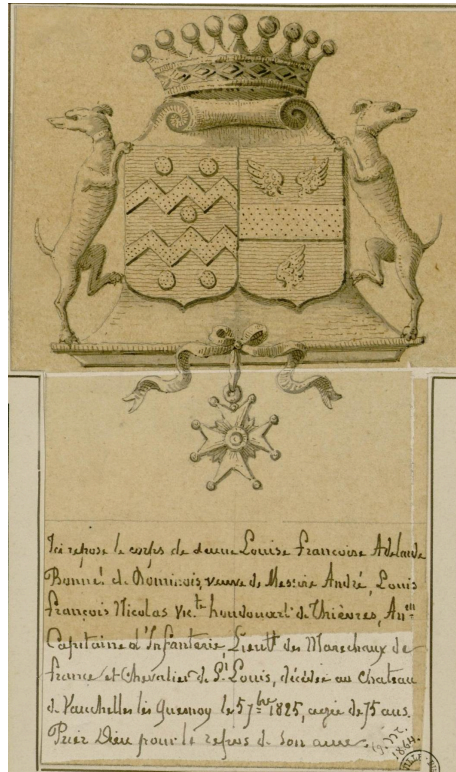 Ici repose le corps de dame Louise Francoise Adelaide
Bonnel de Dominois, veuve de Messire André, Louis
françois Nicolas vic.te houdouart de Thièvres, An.en
Capitaine d'Infanterie, Lieut.t des Marechaux de
france et Chevalier de S.t Louis, décédée au chateau
de Vauchelles les Quesnoy le 5 7.bre 1825, agée de 75 ans.
Priez Dieu pour le repos de son ame
1864.